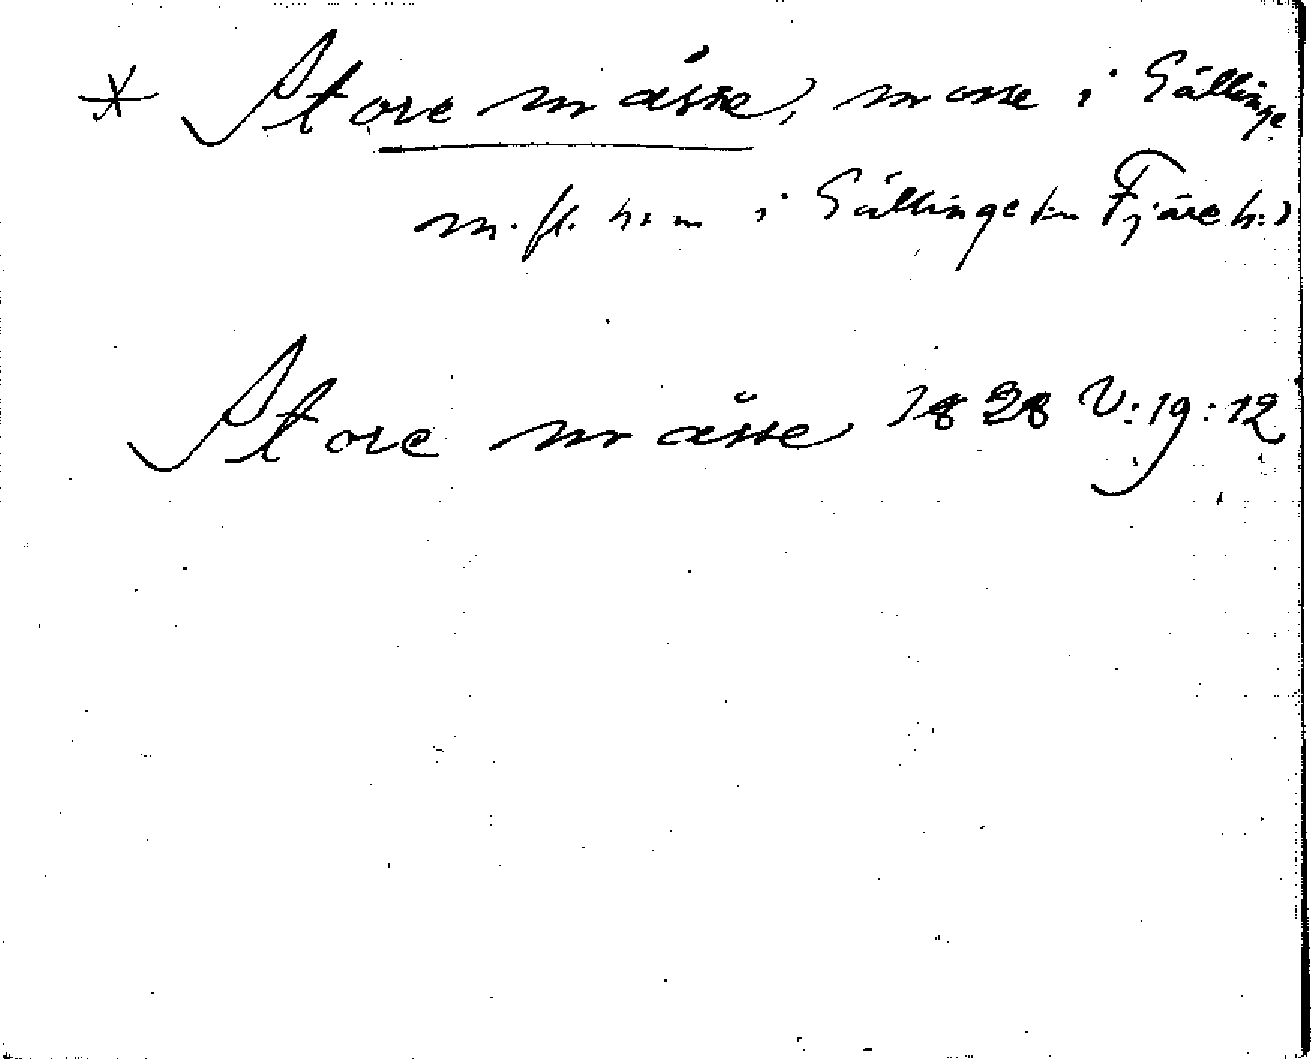 * Store måsse, mosse i Gällinge
m. fl. hem i Gällinge sn Fjäre h:d
Store måsse 1828 V:19:12